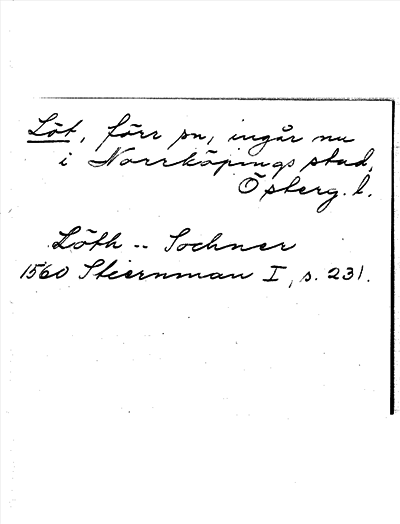 Löt, förr sn, ingår nu
i Norrköpings stad,
Österg. l.
Löth -- Sochner
1560 Stiernman I, s. 231.